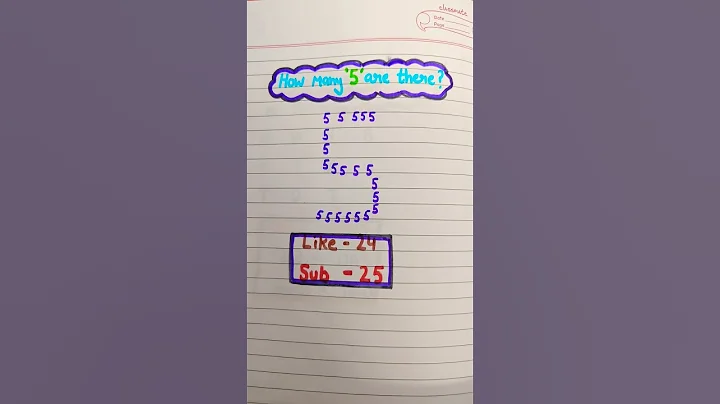 classmate
Date
Page
How many '5' are there?
5 5 5 5 5
5
5
5 5 5 5 5
5
5
5
5 5 5 5 5 5
Like - 24
Sub - 25